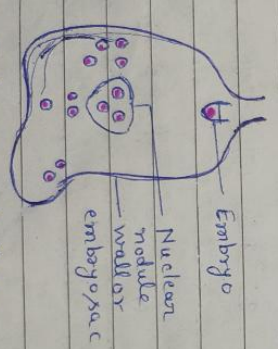 Embryo
Nuclear
nodule
wall or
embryosac